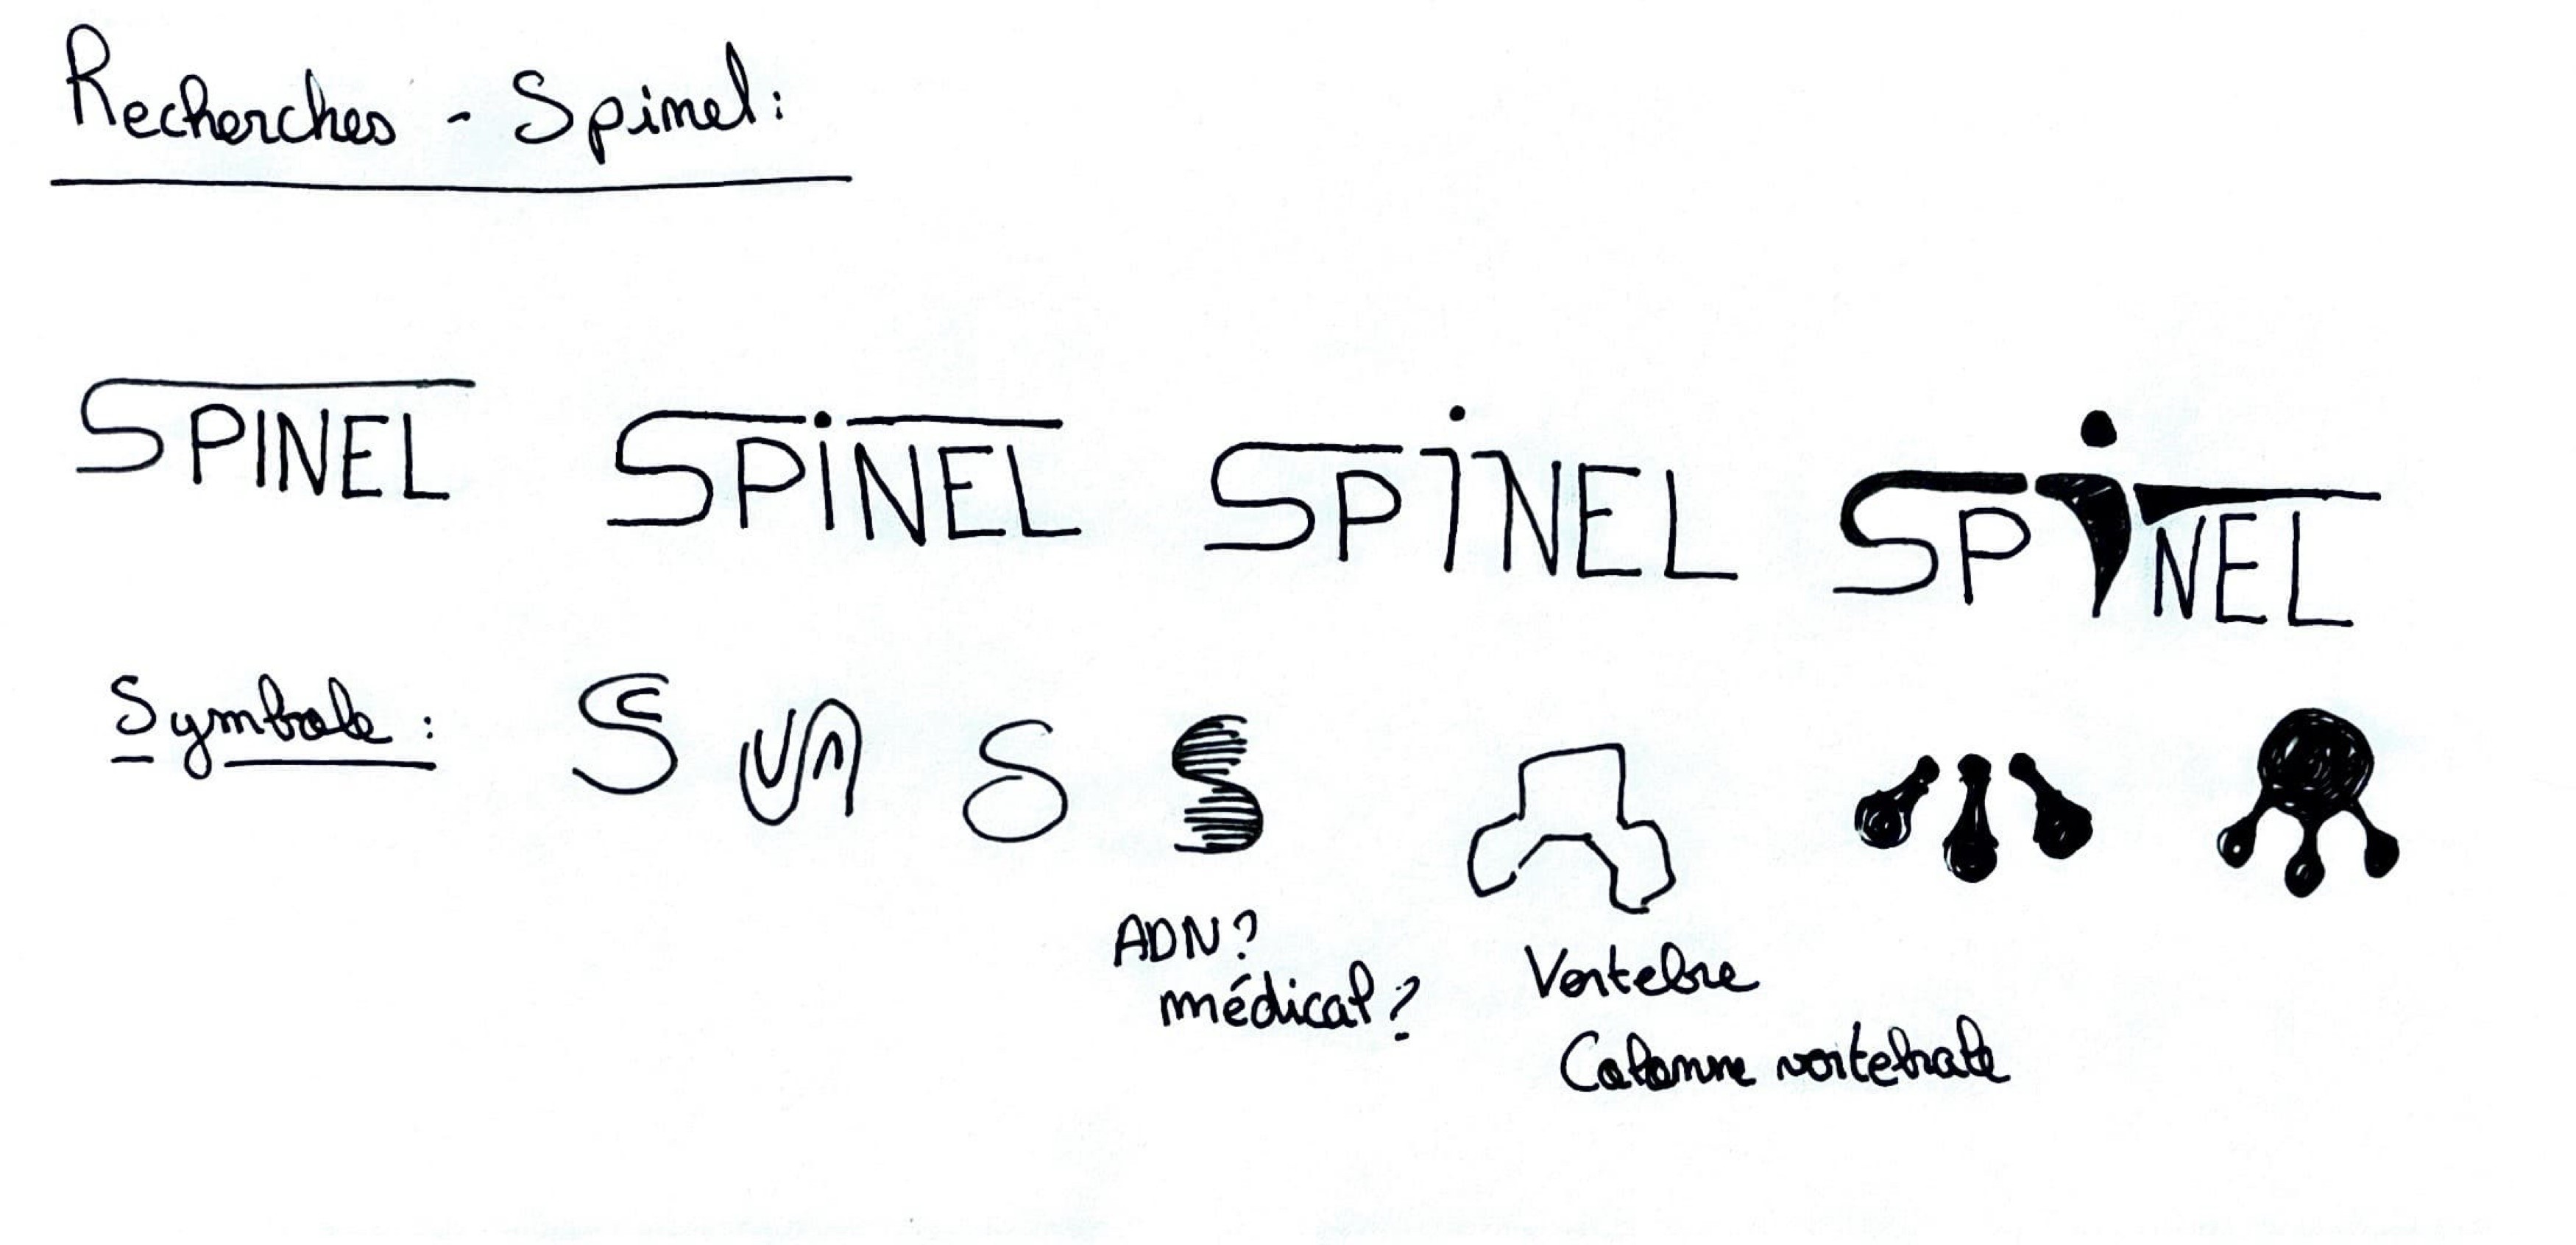 Recherches - Spinel:
SPINEL SPiNEL SPiNEL SPiNEL
Symbole :
S S S S
ADN?
médical?
Vertebre
Colonne vertebrale